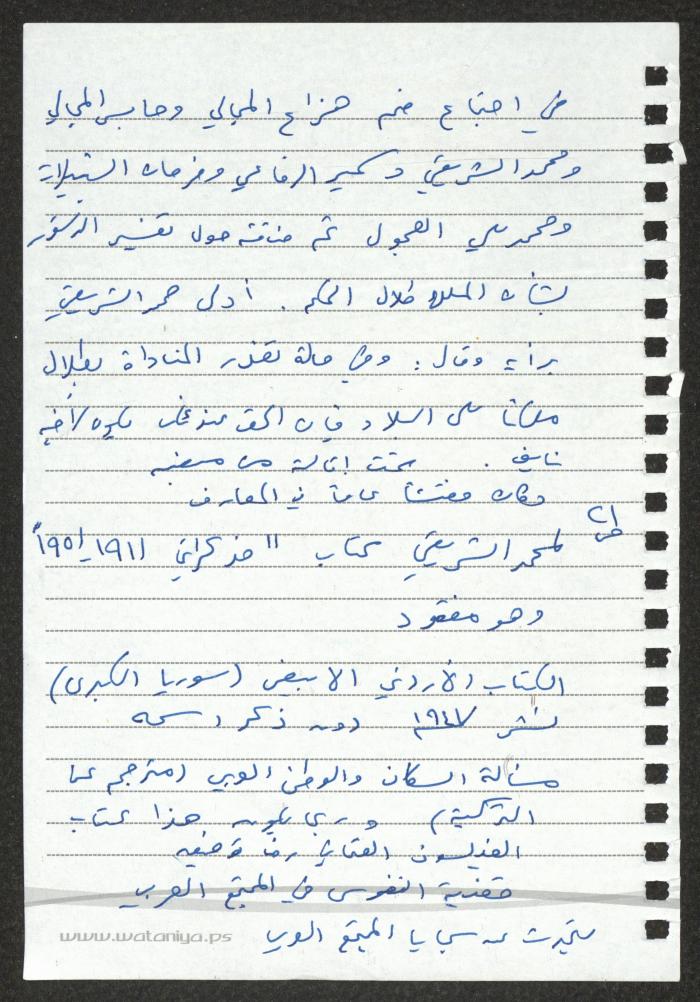 في اجتماع ضم هزاع المجالي وحابس المجالي
ومحمد الشريقي وسمير الرفاعي وفرحان الشبيلات
ومحمد علي العجلوني تم مناقشة حول تفسير الدستور
بشأن الملك طلال الحكم. أدلى محمد الشريقي
برأيه وقال: وفي حالة تعذر المناداة بطلال
ملكاً على البلاد فإن الحق عندئذ يكون لأخيه
نايف. تمت إقالة من منصبه
وكان مفتشاً عاماً في المعارف
لمحمد الشريقي كتاب "مذكراتي 1911-1951"
وهو مفقود
الكتاب الأردني الأبيض (سوريا الكبرى)
نشر 1947 دون ذكر اسمه
مسألة السكان والوطن العربي (مترجم عن
التركية) وربما يكون هذا كتاب
الفيلسوف العثماني رضا توفيق
قضية النفوس في المجتمع العربي
يتحدث عن سجايا المجتمع العربي
www.wataniya.ps